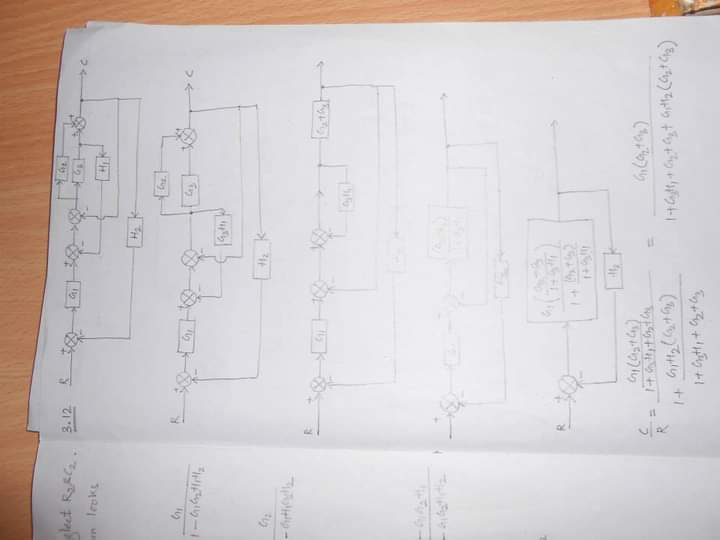 glect R2 & C2.
on looks
G1
1 - G1G2H1H2
G2
- G1H1G2H2
- G1G2H1
- G1G2H1H2
3.12
R + - G1 + - + - G2 G3 + + C
H1
H2
R + - G1 + - - G2 G3 + + C
G3H1
H2
R + - G1 + - + - G2+G3
G3H1
+ - -
1+G3H1
R + - G1 (G2+G3 / 1+G3H1)
1 + (G2+G3) / 1+G3H1
H2
C/R = G1(G2+G3) / 1+G3H1+G2+G3 = G1(G2+G3)
1 + G1H2(G2+G3) / 1+G3H1+G2+G3 1+G3H1+G2+G3+G1H2(G2+G3)